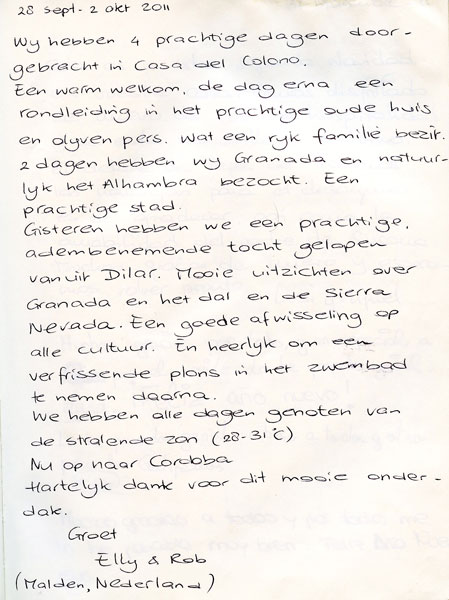 28 sept - 2 okt 2011
Wy hebben 4 prachtige dagen door-
gebracht in Casa del Colono.
Een warm welkom, de dag erna een
rondleiding in het prachtige oude huis
en olyven pers. Wat een ryk familie bezit.
2 dagen hebben wy Granada en natuur-
lyk het Alhambra bezocht. Een
prachtige stad.
Gisteren hebben we een prachtige,
adembenemende tocht gelopen
vanuit Dilar. Mooie uitzichten over
Granada en het dal en de Sierra
Nevada. Een goede afwisseling op
alle cultuur. En heerlyk om een
verfrissende plons in het zwembad
te nemen daarna.
We hebben alle dagen genoten van
de stralende zon (28-31°C)
Nu op naar Cordoba
Hartelyk dank voor dit mooie onder-
dak.
Groet
Elly & Rob
(Malden, Nederland)